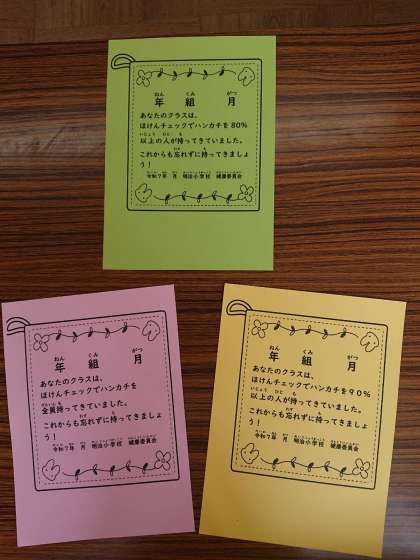 年 組 月
あなたのクラスは、
ほけんチェックでハンカチを80%
以上の人が持ってきていました。
これからも忘れずに持ってきましょ
う！
令和7年 月 明治小学校 健康委員会
年 組 月
あなたのクラスは、
ほけんチェックでハンカチを
全員持ってきていました。
これからも忘れずに持ってきましょ
う！
令和7年 月 明治小学校 健康委員会
年 組 月
あなたのクラスは、
ほけんチェックでハンカチを90%
以上の人が持ってきていました。
これからも忘れずに持ってきましょ
う！
令和7年 月 明治小学校 健康委員会